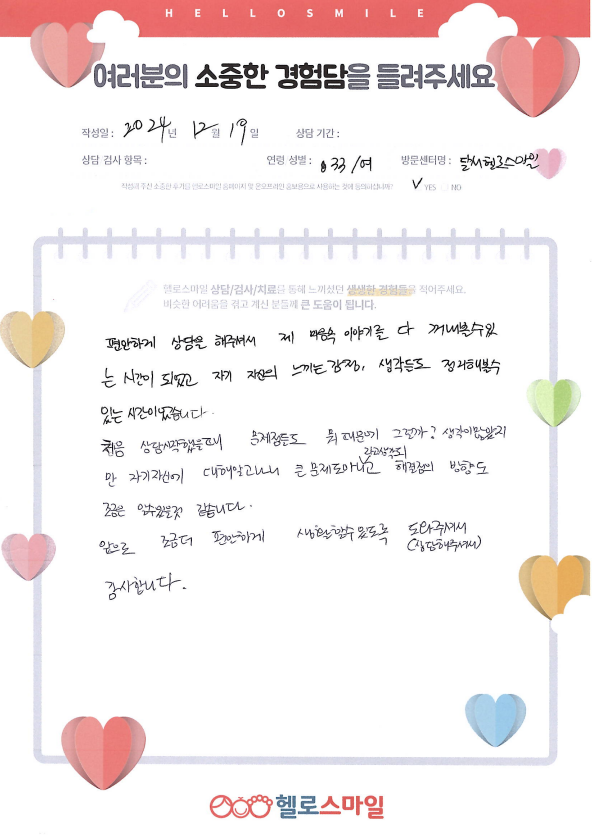 HELLOSMILE
여러분의 소중한 경험담을 들려주세요
작성일 : 2024년 12월 19일 상담 기간 :
상담 검사 항목 : 연령 성별 : 033/여 방문센터명 : 달서헬로스마일
작성해 주신 소중한 후기를 헬로스마일 홈페이지 및 온오프라인 홍보용으로 사용하는 것에 동의하십니까? V YES NO
헬로스마일 상담/검사/치료를 통해 느끼셨던 생생한 경험들을 적어주세요.
비슷한 어려움을 겪고 계신 분들께 큰 도움이 됩니다.
편안하게 상담을 해주셔서 제 마음속 이야기를 다 꺼내볼수있
는 시간이 되었고 자기 자신의 느끼는 감정, 생각들도 정리해볼수
있는 시간이었습니다.
처음 상담시작했을때 문제점들도 뭐 때문에 그럴까? 생각이많았지
만 자기자신에 대해알고나니 큰 문제도아니고 라고생각도되 해결점의 방향도
조금은 알수있을것 같습니다.
앞으로 조금더 편안하게 생활할수있도록 도와주셔서
(상담해주셔서)
감사합니다.
헬로스마일